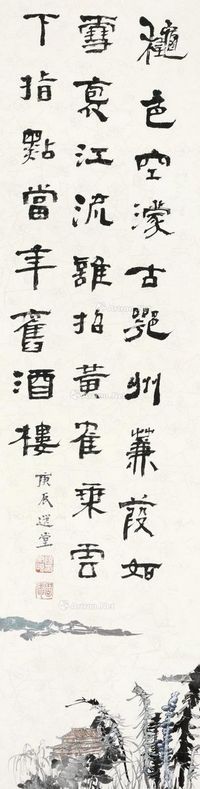 龝色空濛古鄂州蒹葭如
雪裹江流難招黃隺乘雲
下指點當年舊酒樓
庚辰選堂